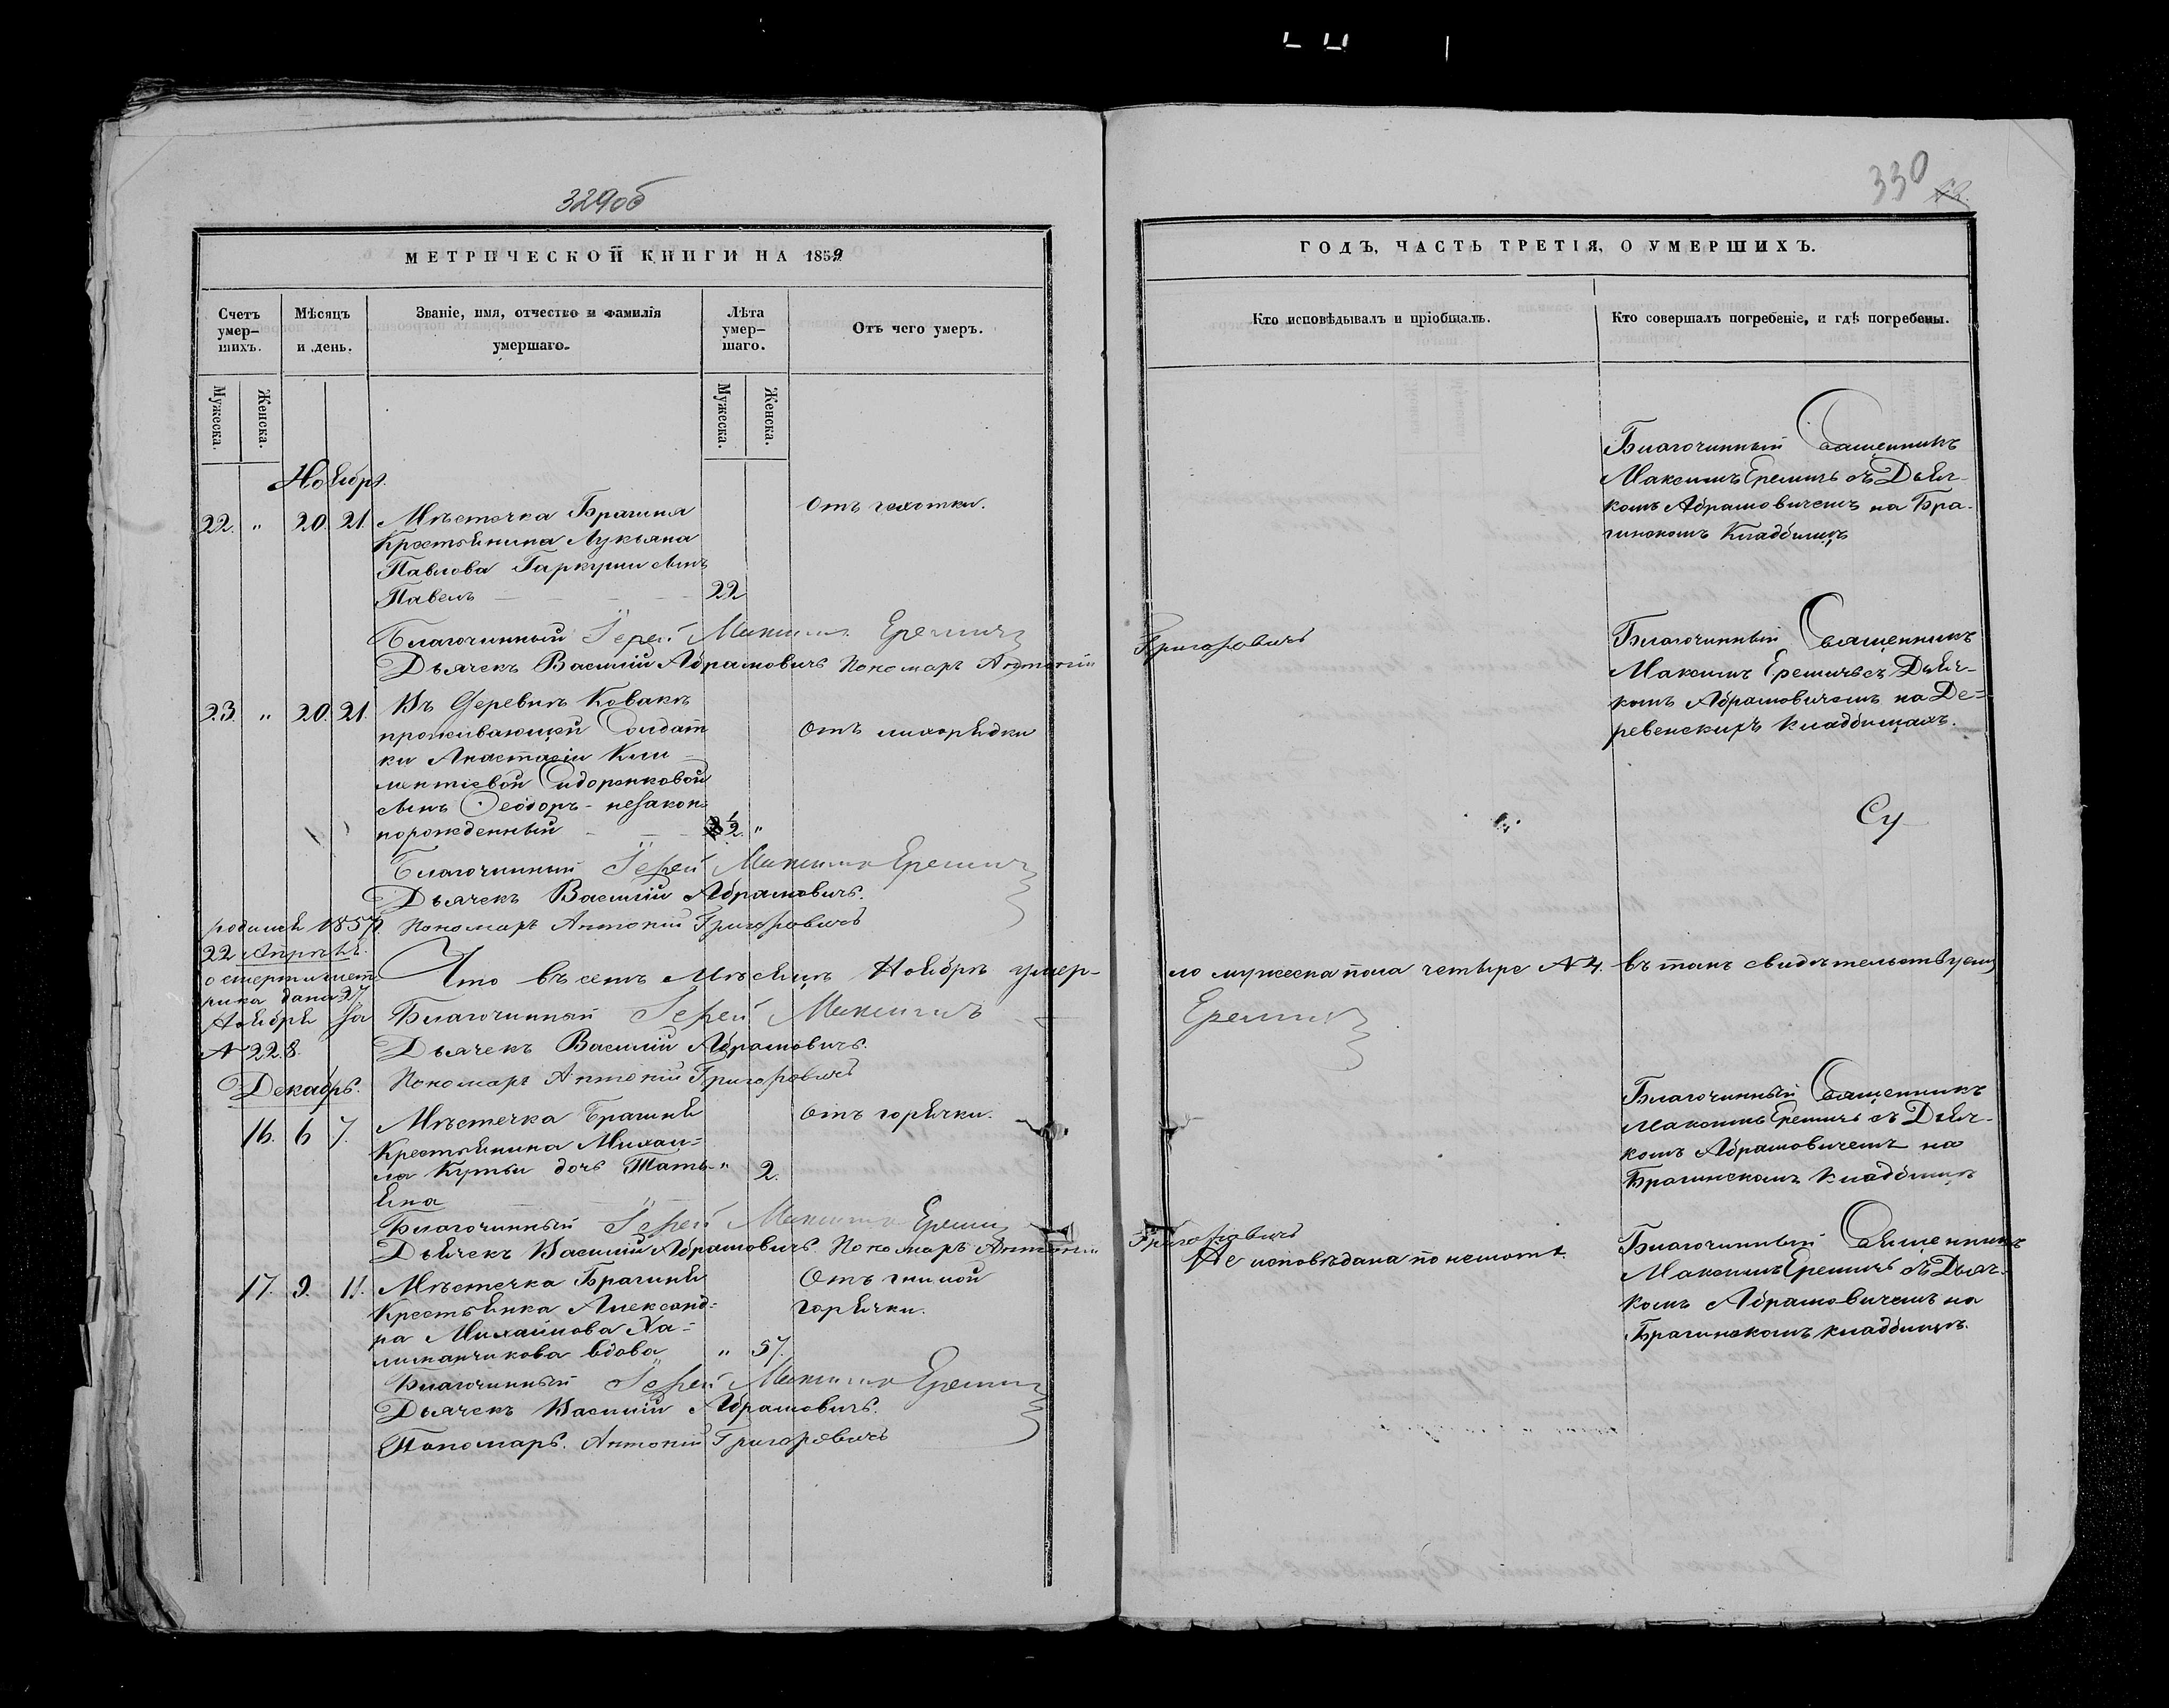 329об
МЕТРИЧЕСКОЙ КНИГИ НА 1859
Счетъ умер-шихъ.
Мѣсяцъ и день.
Званіе, имя, отчество и фамилія умершаго.
Лѣта умер-шаго.
Отъ чего умеръ.
Мужеска.
Женска.
Мужеска.
Женска.
Ноябрь.
22. " 20. 21. Мѣстечка Брагиня Отъ чахотки.
Крестьянина Лукьяна
Павлова Гаркуши сынъ
Павелъ 22
Благочинный Іерей Максимъ Еремичъ
Дьячекъ Василій Абрамовичъ Пономарь Антоній Григоровичъ
23. " 20. 21. Въ Деревнѣ Ковакѣ
проживающей Солдат
ки Анастасіи Кли- Отъ лихорядки
ментіевой Сидоренковой
сынъ Ѳеодоръ - незакон-
норожденный 2½ "
Благочинный Іерей Максимъ Еремичъ
Дьячекъ Василій Абрамовичъ.
Пономарь Антоній Григоровичъ
родился 1857
22 Апрѣля.
о смерти мет-
рика дана 27
Ноября за
N 228.
Что въ семъ Мѣсяцѣ Ноябрѣ умер-ло мужеска пола четыре N 4. въ томъ свидѣтельствуемъ
Благочинный Іерей Максимъ Еремичъ
Дьячекъ Василій Абрамовичъ.
Пономарь Антоній Григоровичъ
Декабрь.
16. 6 7. Мѣстечка Брагиня Отъ горячки.
Крестьянина Михаи-
ла Кутьи дочь Тать- " 2.
яна
Благочинный Іерей Максимъ Еремичъ
Дьячекъ Василій Абрамовичъ Пономарь Антоній Григоровичъ
17. 9. 11. Мѣстечка Брагиня Отъ гнилой
Крестьянка Александ- горячки.
ра Михайлова Ха-
лиманчикова вдова " 57.
Благочинный Іерей Максимъ Еремичъ
Дьячекъ Василій Абрамовичъ.
Пономарь. Антоній Григоровичъ
330
ГОДЪ, ЧАСТЬ ТРЕТІЯ, О УМЕРШИХЪ.
Кто исповѣдывалъ и пріобщалъ.
Кто совершалъ погребеніе, и гдѣ погребены.
Благочинный Священникъ
Максимъ Еремичъ съ Дьяч-
комъ Абрамовичемъ на Бра-
гинскомъ Кладбищѣ
Благочинный Священникъ
Максимъ Еремичъ съ Дьяч-
комъ Абрамовичемъ на Де-
ревенскихъ Кладбищахъ.
Су
Благочинный Священникъ
Максимъ Еремичъ съ Дьяч-
комъ Абрамовичемъ на
Брагинскомъ Кладбищѣ
Не исповѣдана по немотѣ.
Благочинный Священникъ
Максимъ Еремичъ съ Дьяч-
комъ Абрамовичемъ на
Брагинскомъ кладбищѣ.